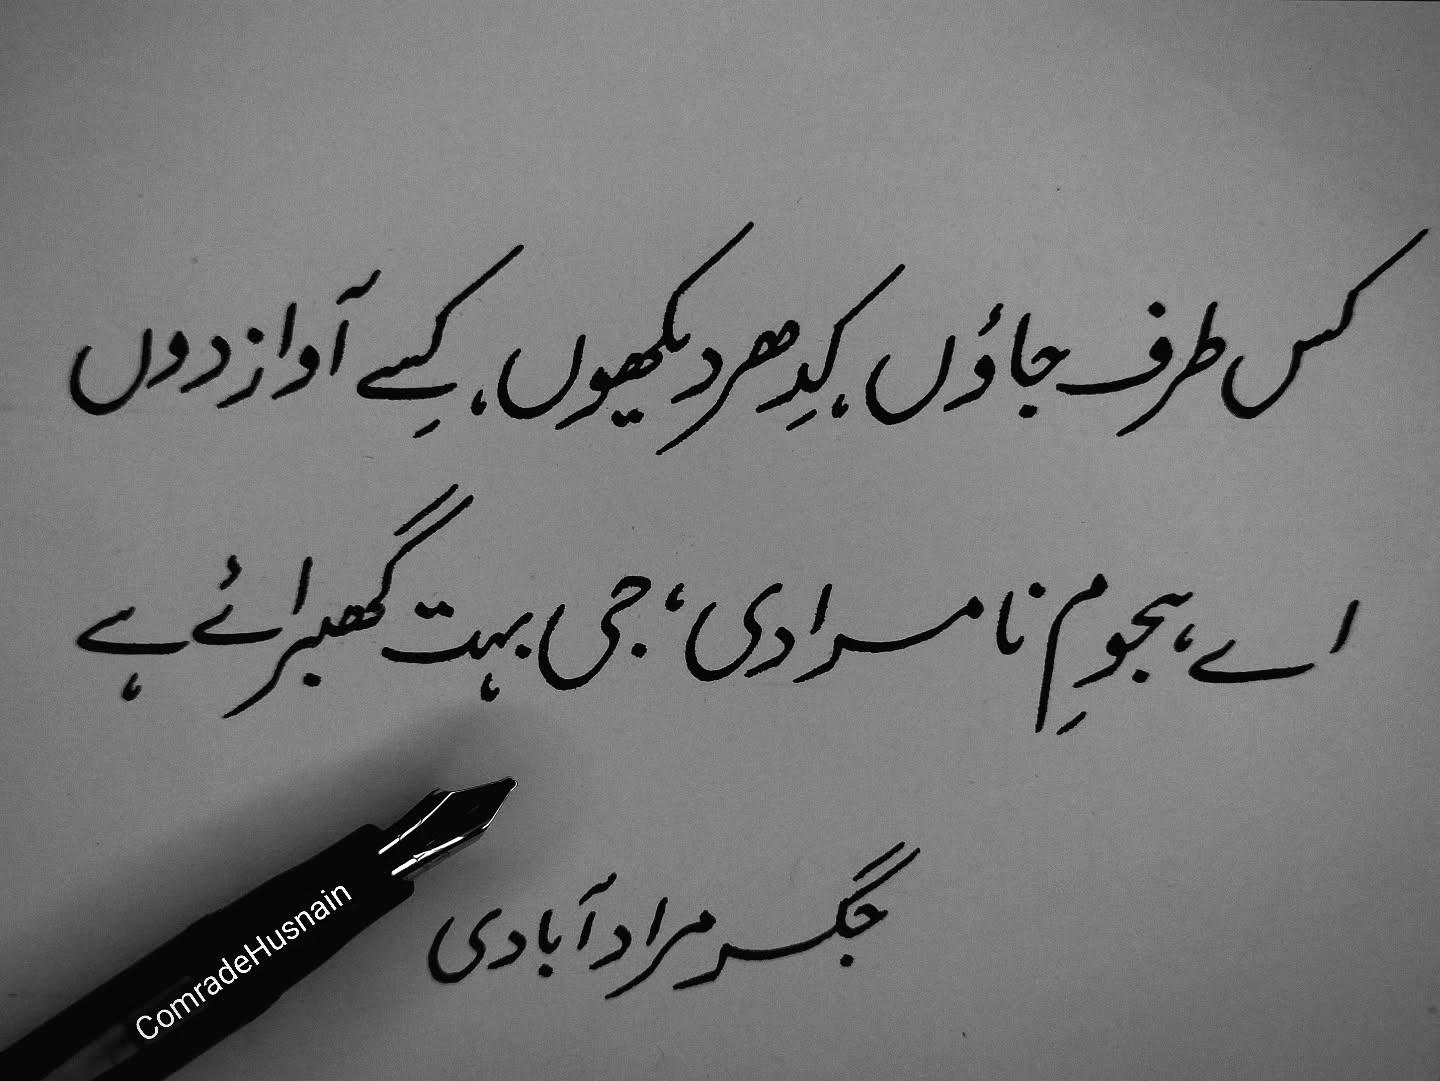 کس طرف جاؤں، کِدھر دیکھوں، کِسے آواز دوں
اے ہجومِ نامرادی، جی بہت گھبرائے ہے
جگر مراد آبادی
ComradeHusnain